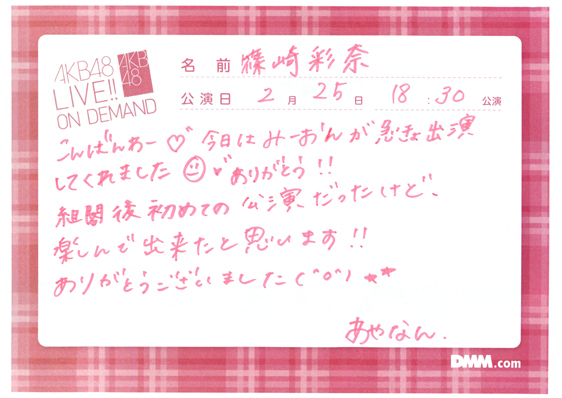 AKB48
LIVE!!
ON DEMAND
AKB
48
名 前 篠崎彩奈
公演日 2 月 25 日 18 : 30 公演
こんばんわー♡ 今日はみーおんが急きょ出演
してくれました ありがとう!!
組閣後初めての公演だったけど、
楽しんで出来たと思います!!
ありがとうございました(^o^)★★
あやなん.
DMM.com